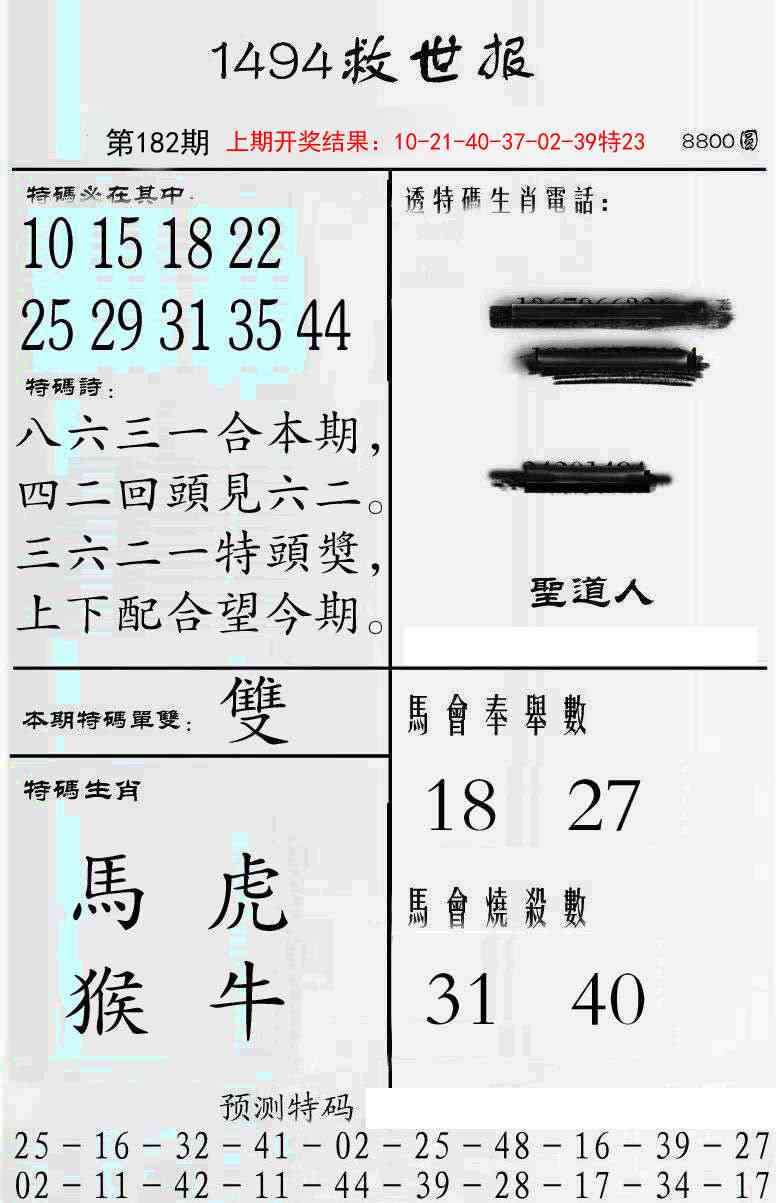 1494救世报
第182期 上期开奖结果：10-21-40-37-02-39特23 8800圆
特碼必在其中：
10 15 18 22
25 29 31 35 44
特碼詩：
八六三一合本期，
四二回頭見六二。
三六二一特頭獎，
上下配合望今期。
本期特碼單雙：雙
特碼生肖
馬 虎
猴 牛
透特碼生肖電話：
聖道人
馬會奉舉數
18 27
馬會燒殺數
31 40
预测特码
25－16－32－41－02－25－48－16－39－27
02－11－42－11－44－39－28－17－34－17